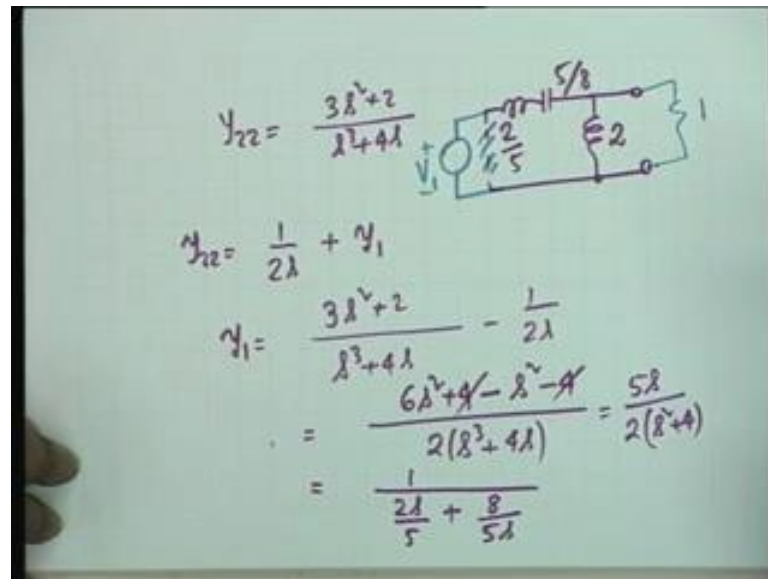 y₂₂ = (3s²+2)/(s³+4s)
5/8
2/5
2
1
+ V₁ −
y₂₂ = 1/(2s) + y₁
y₁ = (3s²+2)/(s³+4s) − 1/(2s)
= (6s²+4−s²−4)/(2(s³+4s)) = 5s/(2(s²+4))
= 1/(2s/5 + 8/(5s))